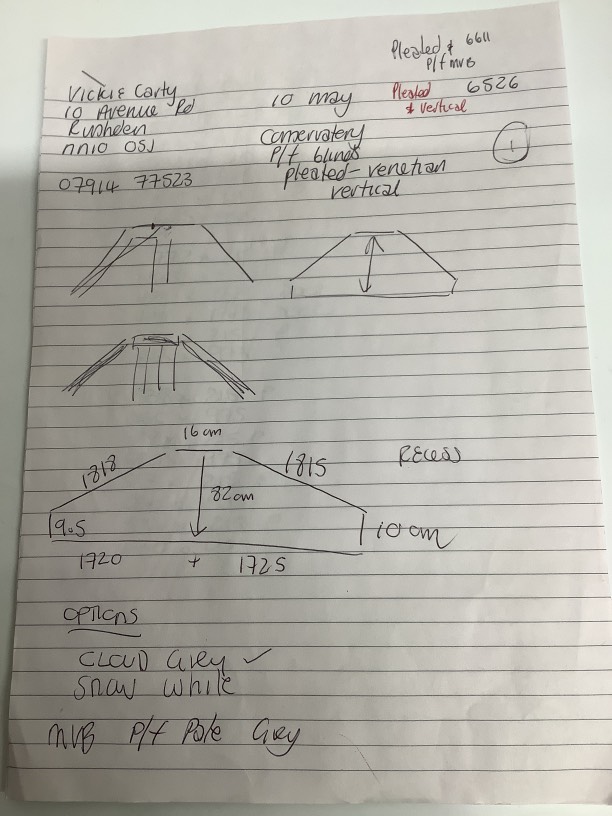 Pleated & 6611
P/f MVB
Vickie Carty
10 Avenue Rd
Rushden
NN10 OSJ
07914 77523
10 May
Conservatory
P/f blinds
pleated - venetian
vertical
Pleated 6526
& vertical
1
16 cm
1818
1815
RECESS
82cm
9.5
10 cm
1720 + 1725
OPTIONS
CLOUD Grey ✓
SNOW White
MVB P/f Pale Grey